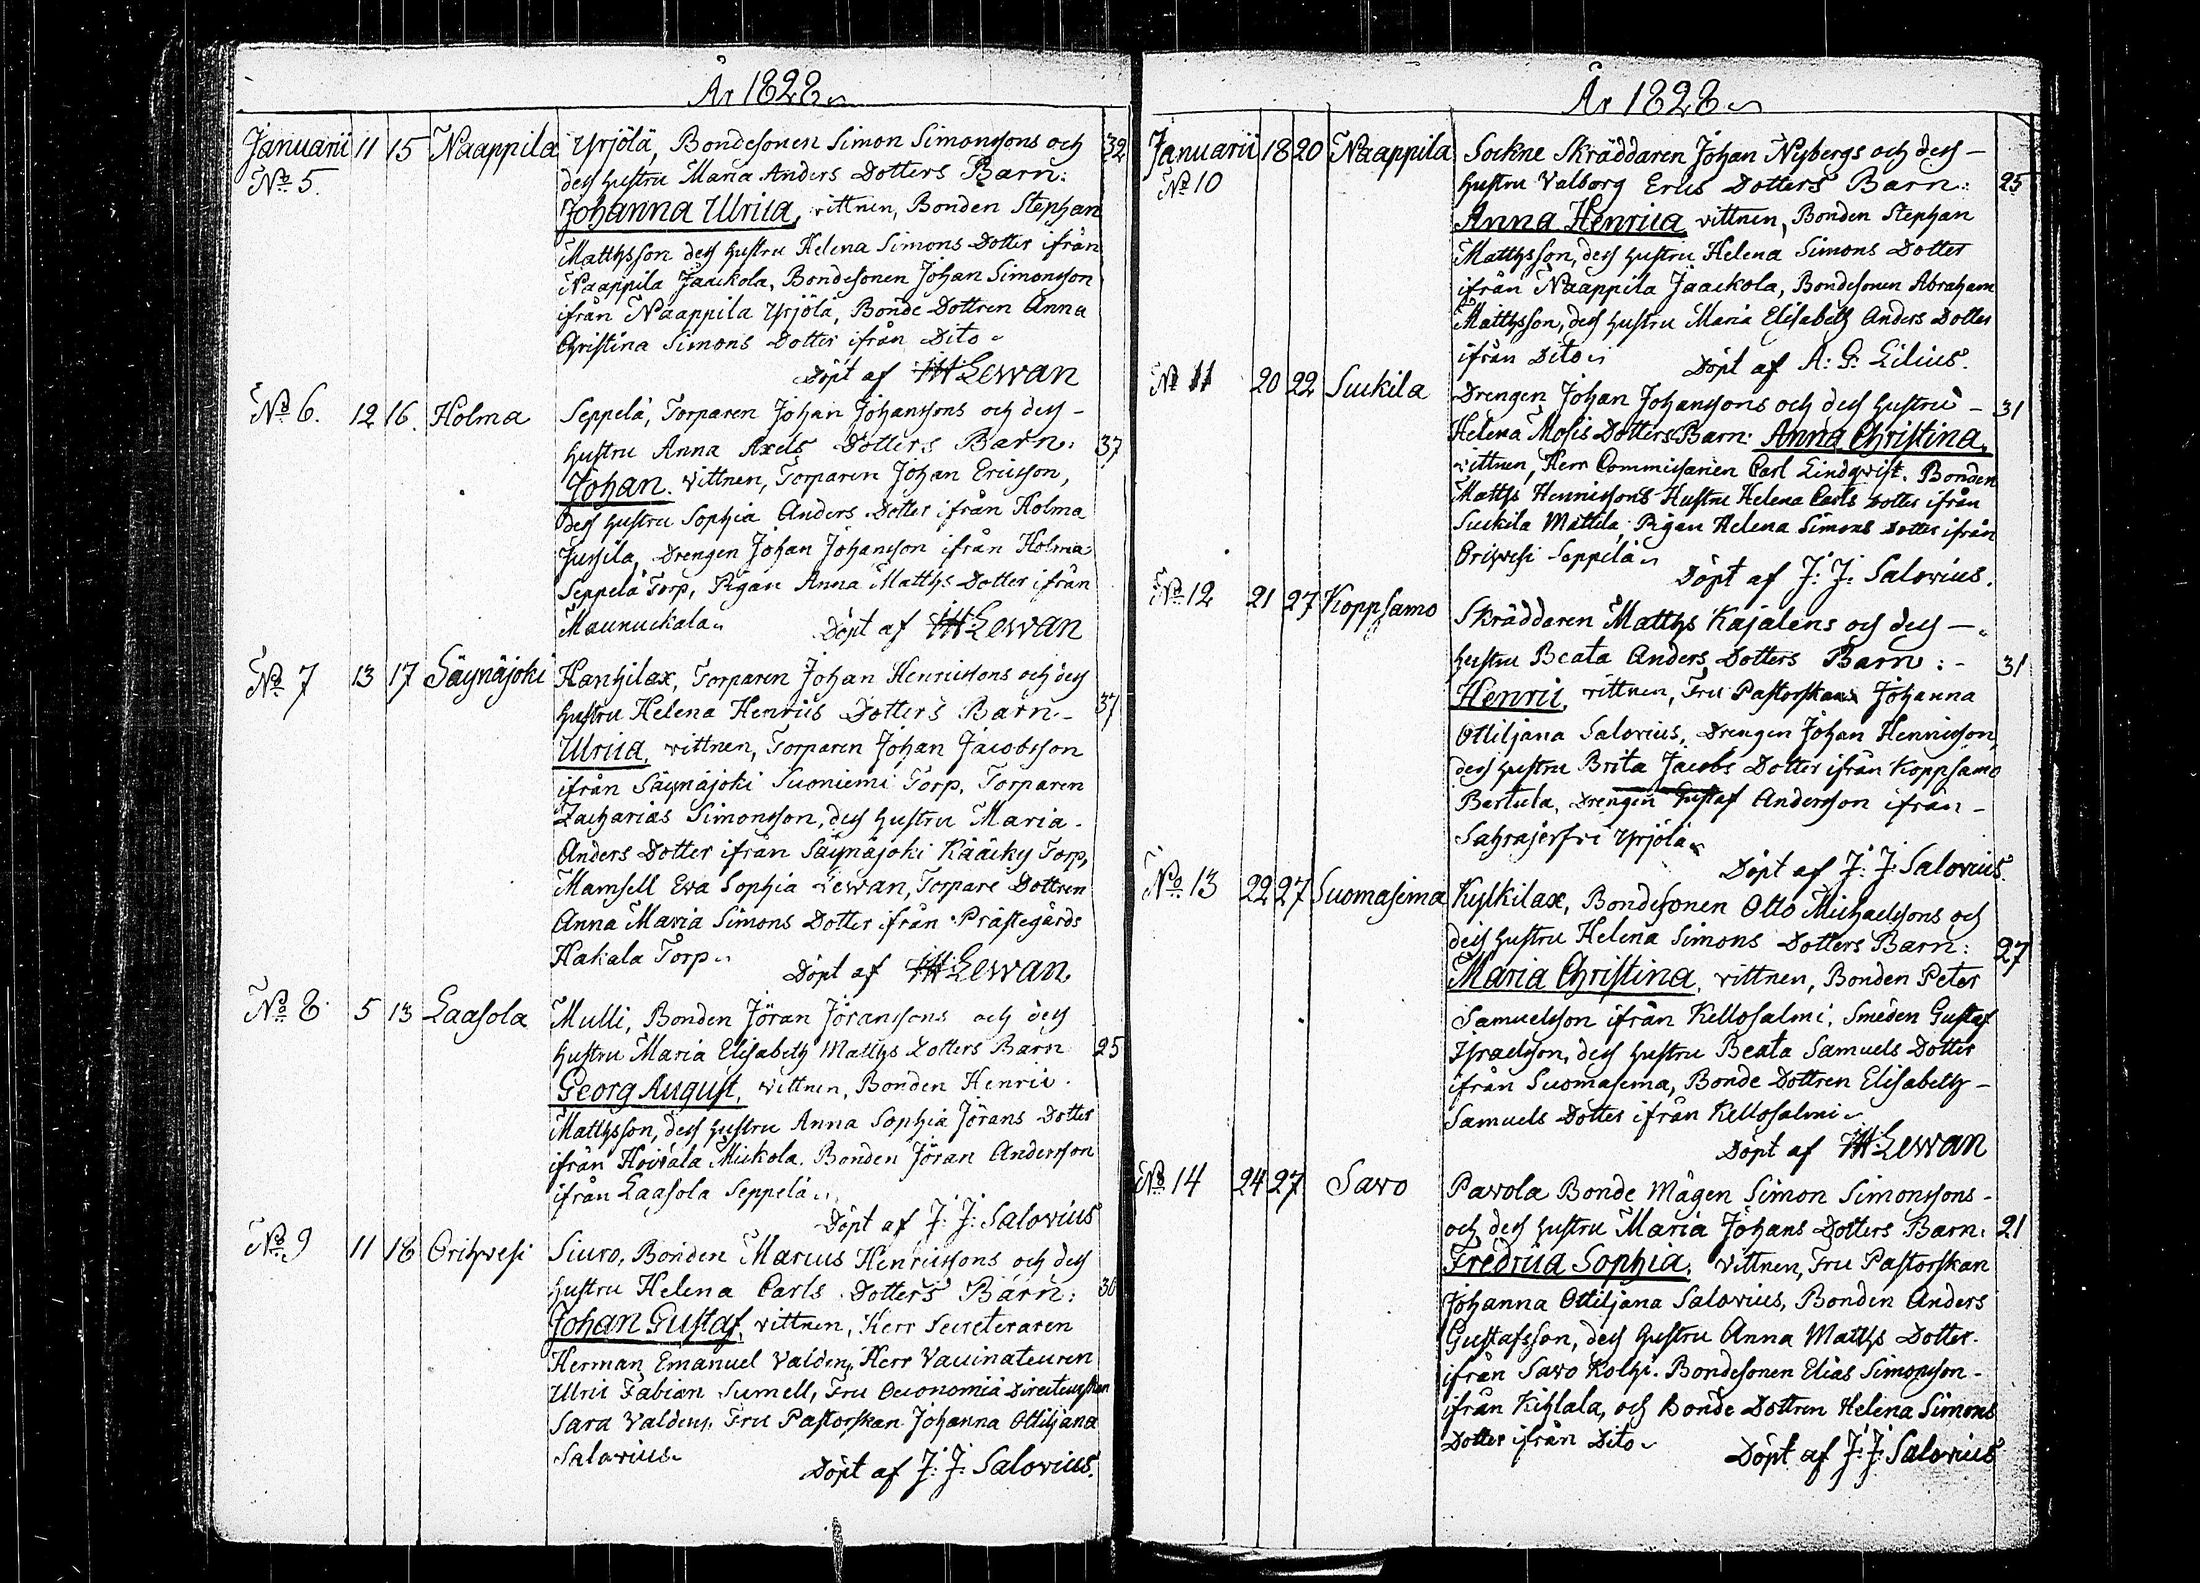 År 1828
Januarii 11 15 Naappila Yrjölä, Bondesonen Simon Simonssons och 32
No 5. dess hustru Maria Anders Dotters Barn:
Johanna Ulrica, vittnen, Bonden Stephan
Matthsson dess hustru Helena Simons Dotter ifrån
Naappila Jaackola, Bondesonen Johan Simonsson
ifrån Naappila Yrjölä, Bonde Dottren Anna
Christina Simons Dotter ifrån Dito
Döpt af Lewan
No 6. 12 16. Holma Seppelä, Torparen Johan Johanssons och dess
hustru Anna Axels Dotters Barn: 37
Johan. vittnen, Torparen Johan Ericsson,
dess hustru Sophia Anders Dotter ifrån Holma
Jussila, Drengen Johan Johansson ifrån Holma
Seppelä Torp, Pigan Anna Matths Dotter ifrån
Maunuckala Döpt af Lewan
No 7 13 17 Säynäjoki Hanhilax, Torparen Johan Henricssons och dess
hustru Helena Henrics Dotters Barn 37
Ulrica, vittnen, Torparen Johan Jacobsson
ifrån Säynäjoki Suoniemi Torp, Torparen
Zacharias Simonsson, dess hustru Maria
Anders Dotter ifrån Säynäjoki Kääcky Torp,
Mamsell Eva Sophia Lewan, Torpare Dottren
Anna Maria Simons Dotter ifrån Prästegårds
Hakala Torp
Döpt af Lewan
No 8. 5 13 Laasola Mulli, Bonden Jöran Jöranssons och dess
hustru Maria Elisabeth Matths Dotters Barn 25
Georg August, vittnen, Bonden Henric
Matthsson, dess hustru Anna Sophia Jörans Dotter
ifrån Hoivala Mickola. Bonden Jöran Andersson
ifrån Laasola Seppelä
Döpt af J: J: Salovius
No 9 11 18 Orihvesi Siuro, Bonden Marcus Henricssons och dess
hustru Helena Carls Dotters Barn: 30
Johan Gustaf, vittnen, Herr Secreteraren
Herman Emanuel Valdens, Herr Vaccinateuren
Ulric Fabian Sumell, Fru Oeconomiä Directeurskan
Sara Valdens, Fru Pastorskan Johanna Ottiljana
Salovius
Döpt af J: J: Salovius.
År 1828
Januarii 18 20 Naappila Sockne Skräddaren Johan Nybergs och dess
No 10 hustru Valborg Erics Dotters Barn: 25
Anna Henrica vittnen, Bonden Stephan
Matthsson, dess hustru Helena Simons Dotter
ifrån Naappila Jaackola, Bondesonen Abraham
Matthsson, dess hustru Maria Elisabeth Anders Dotter
ifrån Dito Döpt af A: G: Lilius.
No 11 20 22 Suckila Drengen Johan Johanssons och dess hustru 31
Helena Mosis Dotters Barn: Anna Christina,
vittnen, Herr Commissarien Carl Lindqvist. Bonden
Matths Henricssons Hustru Helena Carls Dotter ifrån
Suckila Mattila, Pigan Helena Simons Dotter ifrån
Orihvesi Seppilä
Döpt af J: J: Salovius.
No 12 21 27 Koppsamo Skräddaren Matths Kajalens och dess
hustru Beata Anders Dotters Barn: 31
Henric, vittnen, Fru Pastorskan Johanna
Ottiljana Salovius, Drengen Johan Henricsson,
dess hustru Brita Jacobs Dotter ifrån Koppsamo
Bertula, Drengen Gustaf Andersson ifrån
Sahrajerfvi Yrjölä
Döpt af J: J: Salovius
No 13 22 27 Suomasema Kylkilax, Bondesonen Otto Michaelssons och
dess hustru Helena Simons Dotters Barn: 27
Maria Christina, vittnen, Bonden Peter
Samuelsson ifrån Kellosalmi, Smeden Gustaf
Israelsson, dess hustru Beata Samuels Dotter
ifrån Suomasema, Bonde Dottren Elisabeth
Samuels Dotter ifrån Kellosalmi
Döpt af Lewan
No 14 24 27 Savo Pavola Bonde Mågen Simon Simonssons
och dess hustru Maria Johans Dotters Barn: 21
Fredrica Sophia. vittnen, Fru Pastorskan
Johanna Ottiljana Salovius, Bonden Anders
Gustafsson, dess hustru Anna Matths Dotter
ifrån Savo Kolhi. Bondesonen Elias Simonsson
ifrån Kihlala, och Bonde Dottren Helena Simons
Dotter ifrån Dito Döpt af J: J: Salovius